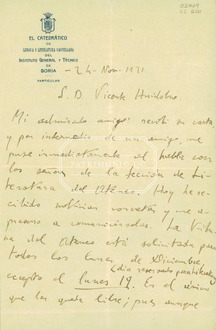 EL CATEDRÁTICO
DE
LENGUA Y LITERATURA CASTELLANA
DEL
INSTITUTO GENERAL Y TÉCNICO
DE
SORIA
PARTICULAR
-24-Nov. 1921
S. D. Vicente Huidobro
Mi admirado amigo: recibí su carta
y por intermedio de un amigo, me
puse inmediatamente al habla con
los señores de la sección de Lite-
ratura del Ateneo. Hoy he re-
cibido noticias concretas y me a-
presuro a comunicárselas. La Tribu-
na del Ateneo está solicitada para
todos los lunes de Diciembre,
excepto el lunes 19. Es el único
que les queda libre; pues aunque